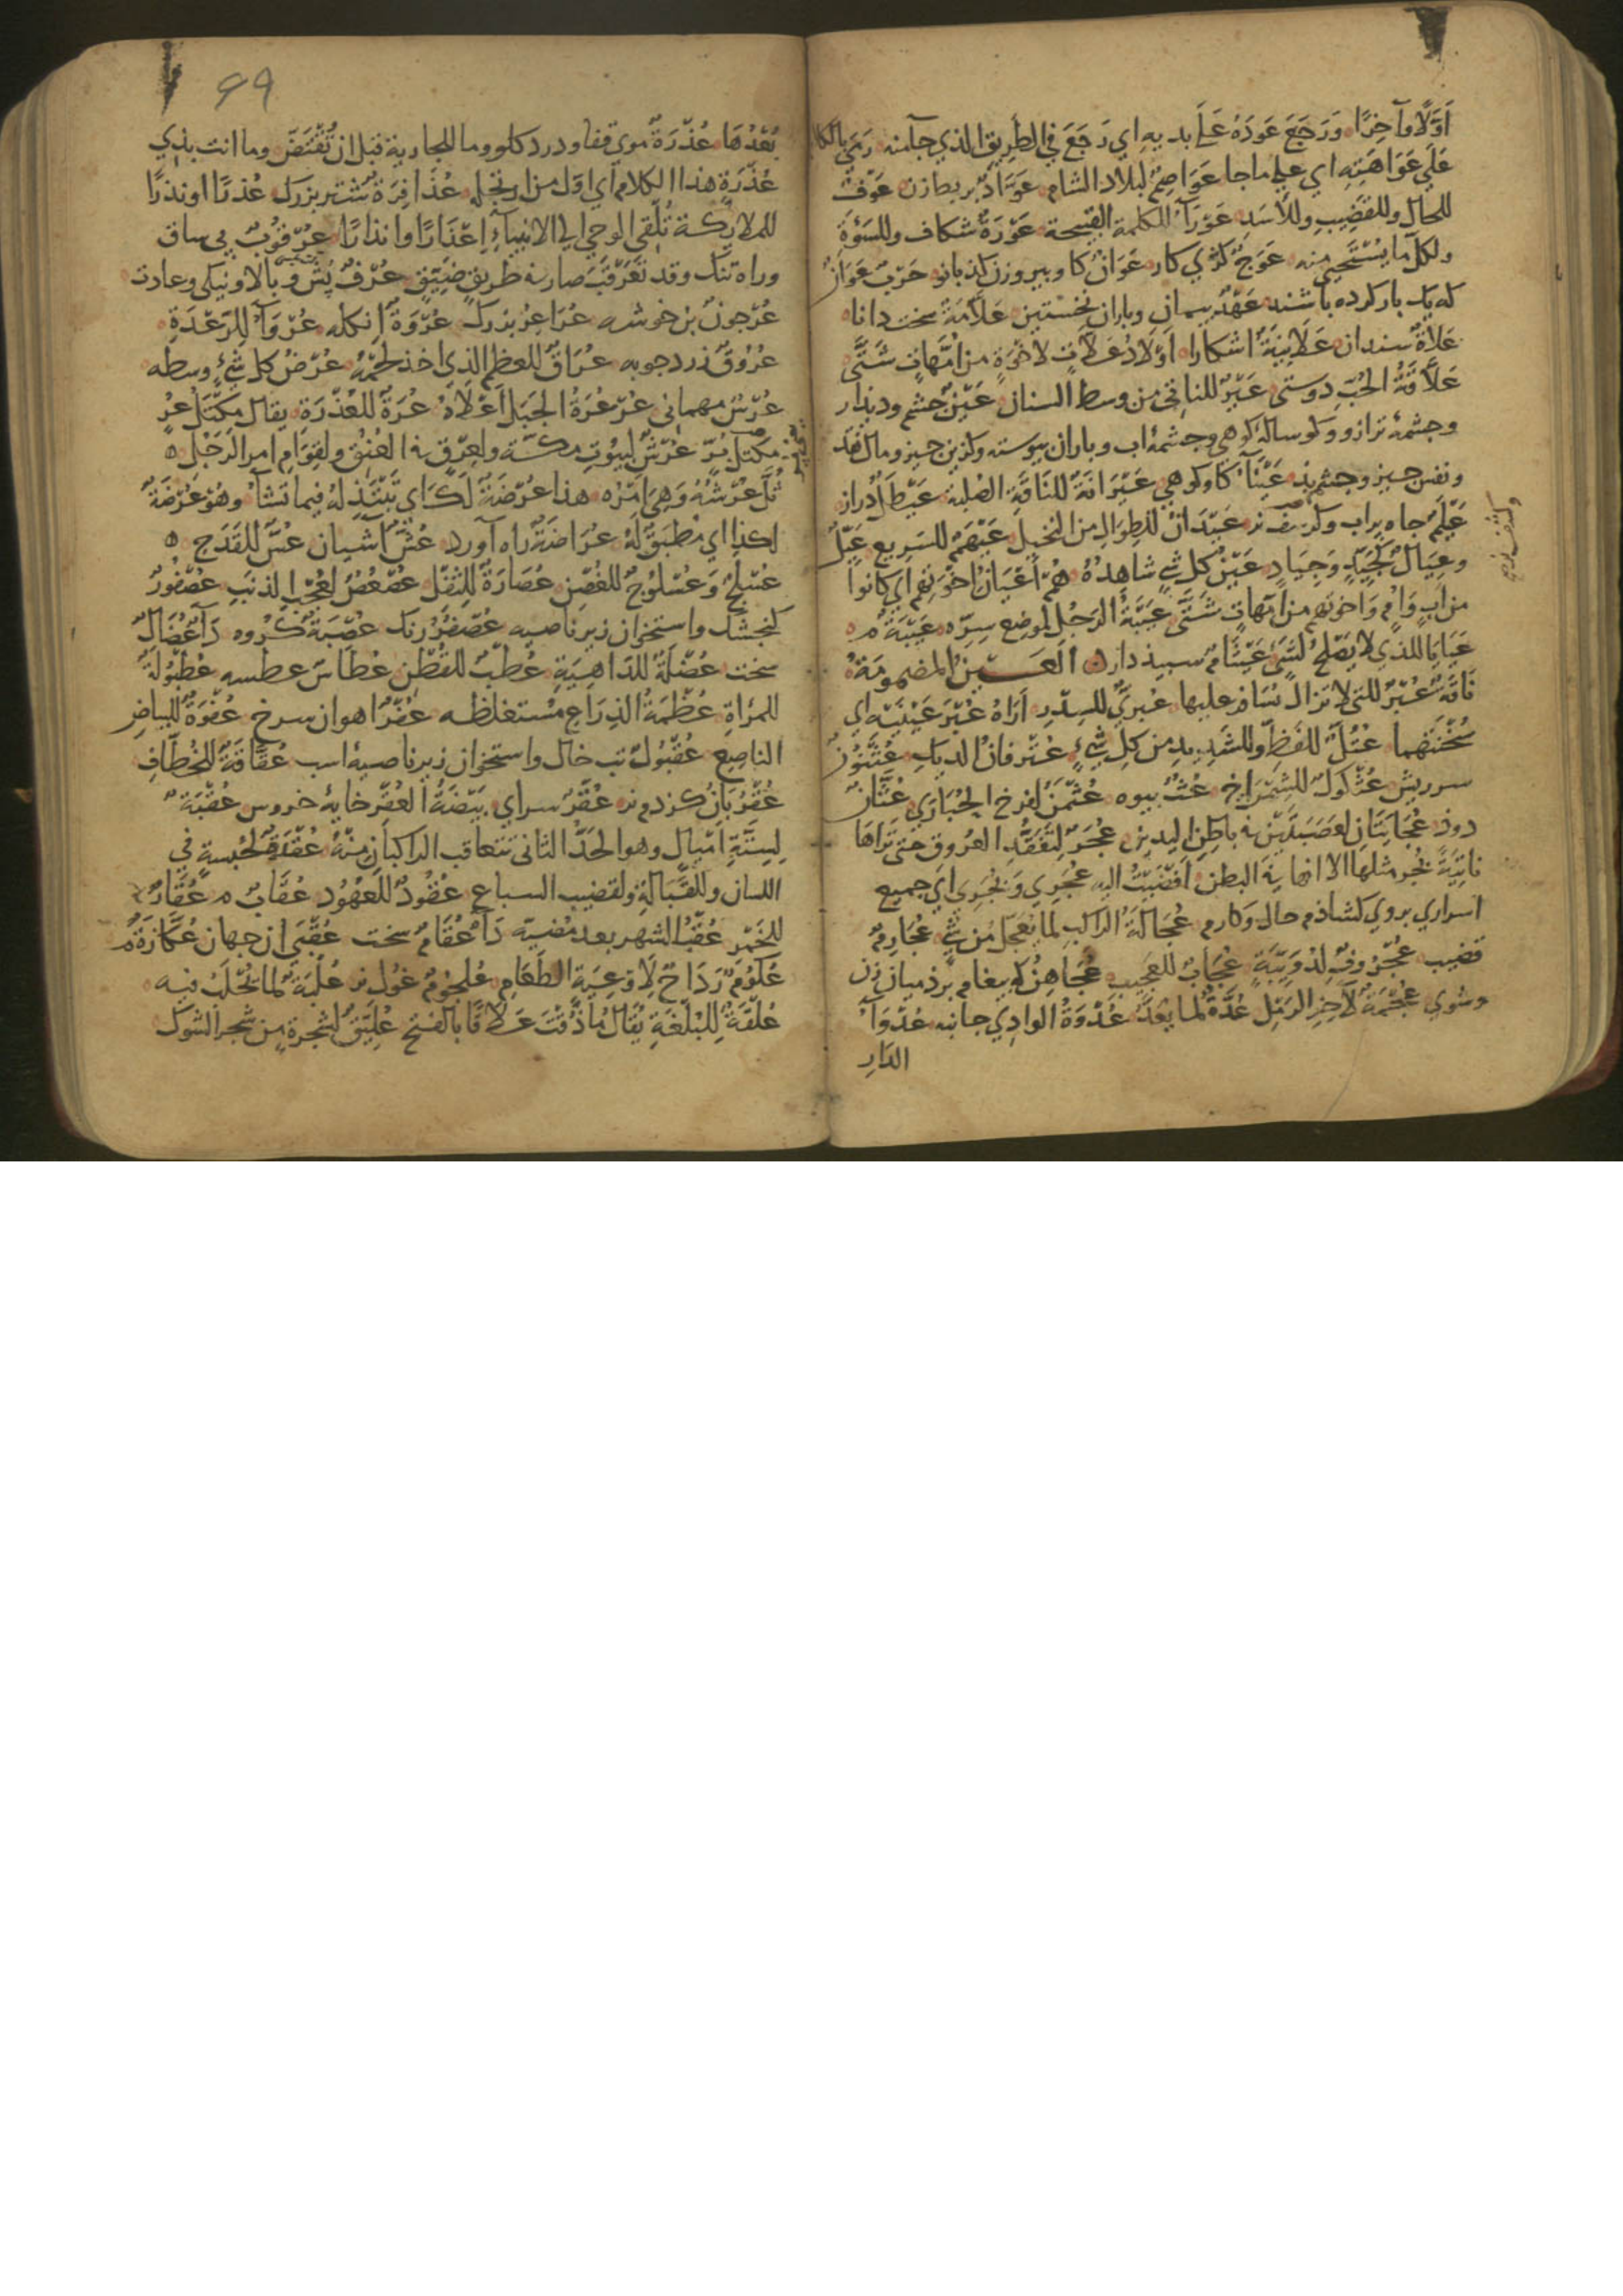 اَوَّلًا وآخِرًا وَرَجَعَ عَودَهُ عَلَى بديهِ اي رَجَعَ في الطَرِيق الذي جآمنه رَمَي بالكلا
عَلَي عَوَاهَنِهِ اي علي ماجا عَوَاصِمُ لبلاد الشام عَوَّادٌ بربط زن عَوْفٌ
للحال وللقضيب وللأسد عَوْرَآءُ للكلمة القبيحة عَوْرَةٌ شكاف وللسَوْءَةِ
ولكل ما يُسْتَحْيي منه عَوَجٌ كژي كار عَوَانٌ كاو وپيرو زن كذبانو حَرْبٌ عَوَانٌ
كه يك بار كرده باشند عَهْدٌ پيمان وباران نخستين عَلَّامَةٌ سخت دانا
عَلَاةٌ سندان عَلَانِيَةٌ اشكارا اَوْلَادُ عَلَّاتٍ لاخْوَةٍ من اُمَّهاتٍ شَتَّى
عَلَاقَةُ الحُبِّ دوستى عَيْرٌ للناتي من وسط السنان عَيْنٌ چشم وديدار
وچشمۀ ترازو وكوسالۀ كوهي وچشمۀ اب وباران پيوسته وكزين چيز ومال نقد
ونفس چيز وچشم بد عَيْنَآءُ كاو كوهي عَيْرَانَةٌ للنَاقَةِ الصُلبة عَيْطَآءُ دراز
عَيْلَمٌ چاه پر اب وكفتار نر عَيْدَانٌ للطِوَالِ من النخيل عَيْهَمٌ للسَرِيع عَيِّلٌ
وعِيَالٌ كَجَيِّدٍ وَجِيَادٍ عَيْنُ كل شي شاهدُهُ هُمْ اَعْيَانُ اخْوَتِهِم اي كانوا
من ابٍ وَاُمٍ وَاخوتهم من اُمهاتٍ شَتَّى عَيْبَةُ الرَجُل لموضع سِرِّه عَيْبَةٌ م
عَيَايَا للذي لا يَصْلُحُ لشَيءٍ عَيْثَامٌ سپيددار العَيْنُ المضمومَةُ
نَاقَةٌ عُبْرٌ للتي لا تزال يُسَافر عليها عُبرِيٌّ للسِدْرِ اَرَاهُ عُبْرَ عَيْنَيْهِ اي
سُخْنَتَهما عُتُلٌّ للفَظِّ وللشديد من كل شيءٍ عُتْرفانٌ الديك عُثْنُونٌ
سرريش عُثْكولٌ للشِمْرَاخ عُثٌّ بيوه عُثْمَنٌ لفرخ الحُبَارَي عُثَانٌ
دود عُجَايَتَانِ لعَصَبَتَيْن في باطن اليدين عُجَرٌ لتَعَقُّدِ العُرُوق حتى تَرَاهَا
ناتِيَةً بُجَرٌ مثلها الا انها في البطن اَفْضَيْتُ اليه عُجَرِي وَبُجَرِي اي جميع
اسراري بروي كشادم حال وكارم عُجَالَةُ الراكب لما يُعَجَّلُ من شي عُجَارِمٌ
قضيب عُجْرُوفٌ لدُوَيْبَّةٍ عُجَابٌ للعجيب عُجَاهِنٌ كه پيغام برد ميان زن
وشوي عُجْمَةٌ لآخر الرمل عُدَّةٌ لما يُعَدُّ عُدْوَةُ الوادي جانبه عُدَوَآءُ
الدَارِ
99
بُعْدُهَا عُذْرَةٌ موي قفا ودرد كلو وما للجارية قبل ان تُقْتَضَّ وما انت بذي
عُذْرَةِ هذا الكلام اي اوّل من ارتجله عُذَافِرَةٌ شتر بزرك عُذرًا او نذرًا
للملائكة تُلْقي الوحي الي الانبياءِ اِعْذَارًا وانذارًا عُرْقُوبٌ پي ساق
وراه تنك وقد تَعَرْقَبَ صار في طريقٍ ضَيِّقٍ عُرْفٌ بُش وبالا ونيكي وعادت
عُرْجونٌ بن خوشه عُرَاعِرُ بزرك عُرْوَةٌ انكله عُرَوَآءُ للرَعْدَةِ
عُرُوقٌ زردچوبه عُرَاقٌ للعظم الذي اخذ لحْمُهُ عُرْضُ كل شيءٍ وسطه
عُرْسٌ مهماني عُرْعُرَةُ الجبل اَعْلَاهُ عُرَةٌ للعُذْرَةِ يقال مكتل عُرٍ
مكتل بُرٍ عُرْشٌ لبيُوتِ مكّة ولعِرْقٍ في العُنُق ولقِوَامِ امر الرَجُل
ثُلَّ عُرْشُهُ وَهي اَمْرُه هذا عُرْضَةٌ لَكَ اي تَبْتَذِلهُ فيما تشآءُ وهُوَ عُرْضَةٌ
لكذا اي مُطبق لهُ عُرَاضَةٌ راه آورد عُشٌّ آشيان عُسٌّ للقدح
عُسْلُجٌ وَعُسْلوُجٌ للغُصْن عُصَارَةٌ للثِفْلِ عُصْعُصٌ لعُجْبِ الذنب عُصْفُورٌ
كنجشك واستخوان زير ناصيه عُصْفُرٌ رنك عُصْبَةٌ كروه دَآءٌ عُضَالٌ
سخت عُضْلَةٌ للداهِيَةِ عُطبٌ للقُطْن عُطَاسٌ عطسه عُطْبُولَةٌ
للمَرْأةِ عُظْمَةُ الذِرَاعِ مُسْتغلظه عُفْرٌ اهوان سرخ عُفْرَةٌ للبياض
الناصع عُقْبُولٌ تب خال واستخوان زير ناصيۀ اسب عُقَّافَةٌ للخُطّافِ
عُقْرُبَانٌ كزدم نر عُقْرٌ سراي بَيْضَةُ العُقْرِ خايۀ خروس عُقْبَةٌ
لسِتَّةِ اَمْيال وهو الحَدُّ الثاني تتعاقب الراكبان منهُ عُقْدَةٌ لحُبْسةٍ في
اللسان وللقَبَالةِ ولقضيب السباع عُقُودٌ للعُهُود عُقَابٌ م عُقَارٌ
للخمر عُقْبُ الشهر بعد مُضيّه دَآءٌ عُقَامٌ سخت عُقْبَى ان جهان عُكّازَةٌ م
عُكُومٌ رَدَاحٌ لِاَوْعِيَةِ الطعَام عُلجُومٌ غوك نر عُلْبَةٌ لما يُحْلَبُ فيه
عُلقَةٌ للبُلْغَةِ يُقَالُ مَا ذُقْتُ عَلَاقًا بالفتح عُلِّيْقٌ لشجرةٍ من شجر الشوك